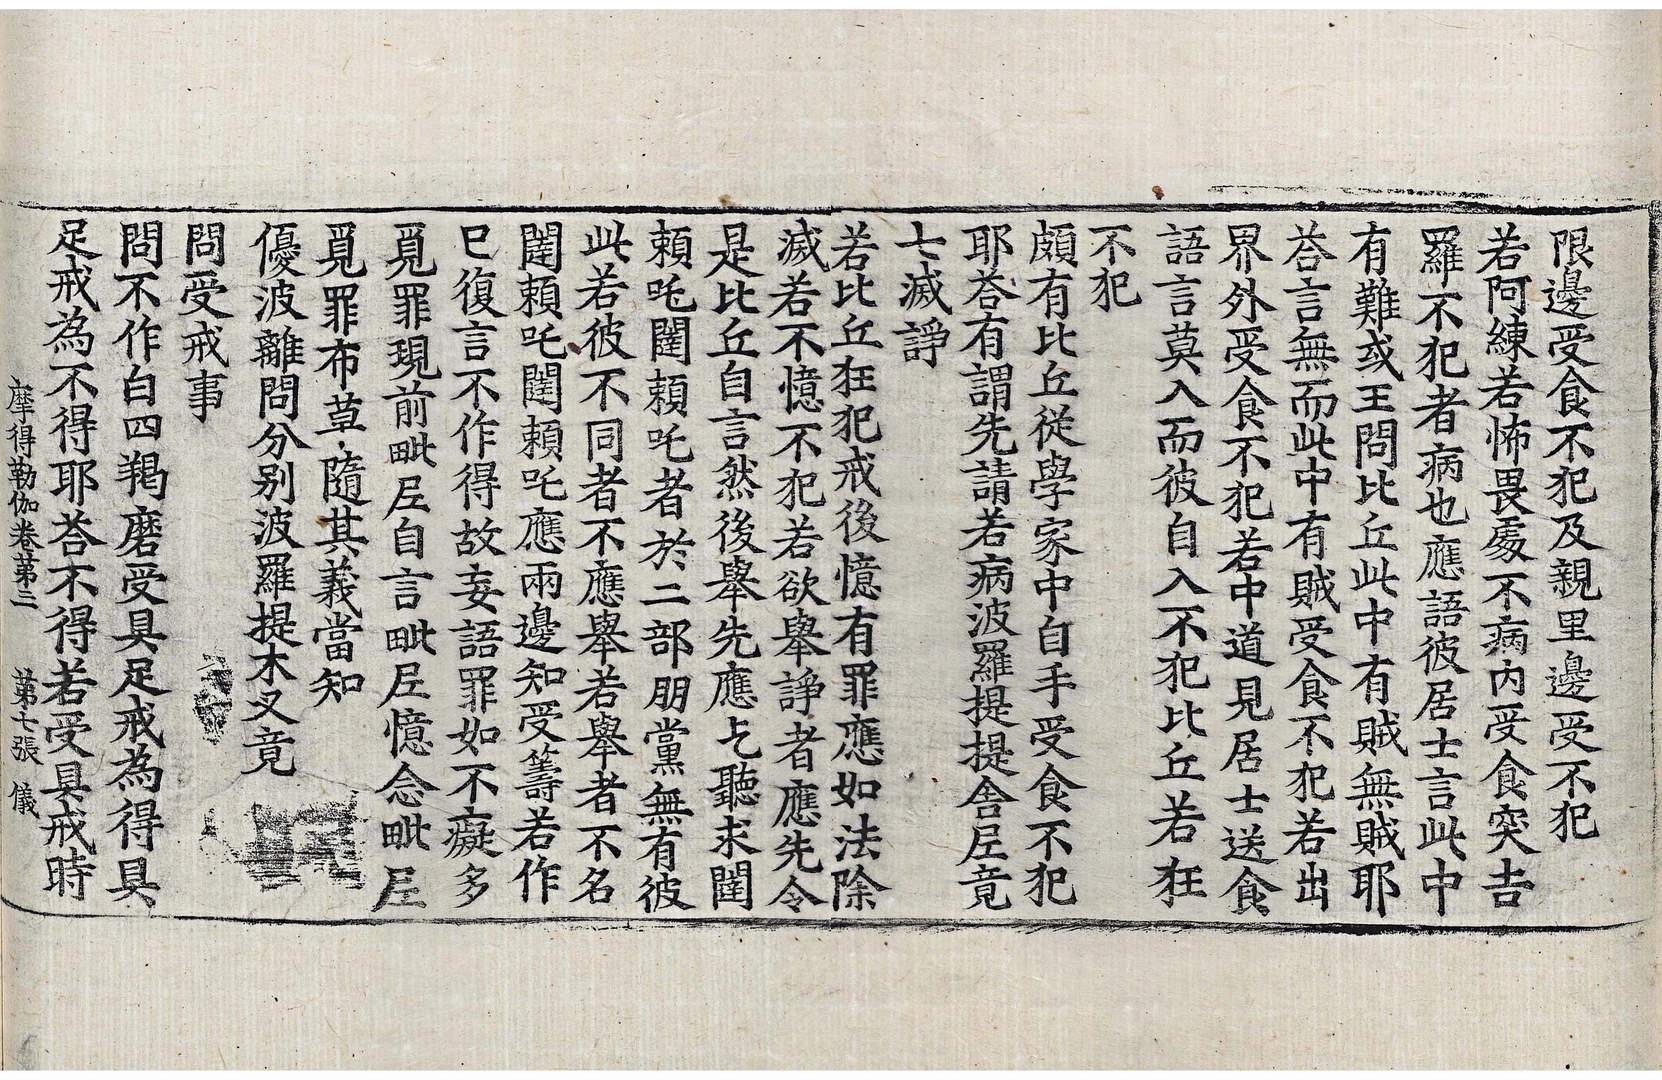 限邊受食不犯及親里邊受不犯
若阿練若怖畏處不病内受食突吉
羅不犯者病也應語彼居士言此中
有難或王問比丘此中有賊無賊耶
荅言無而此中有賊受食不犯若出
界外受食不犯若中道見居士送食
語言莫入而彼自入不犯比丘若狂
不犯
頗有比丘從學家中自手受食不犯
耶荅有謂先請若病波羅提提舍尼竟
七滅諍
若比丘狂犯戒後憶有罪應如法除
滅若不憶不犯若欲舉諍者應先令
是比丘自言然後舉先應乞聽求闥
頼吒闥頼吒者於二部朋黨無有彼
此若彼不同者不應舉若舉者不名
闥頼吒闥頼吒應兩邊知受籌若作
已復言不作得故妄語罪如不癡多
覓罪現前毗尼自言毗尼憶念毗尼
覓罪布草隨其義當知
優波離問分別波羅提木叉竟
問受戒事
問不作白四羯磨受具足戒為得具
足戒為不得耶荅不得若受具戒時
摩得勒伽卷第二 第七張 儀